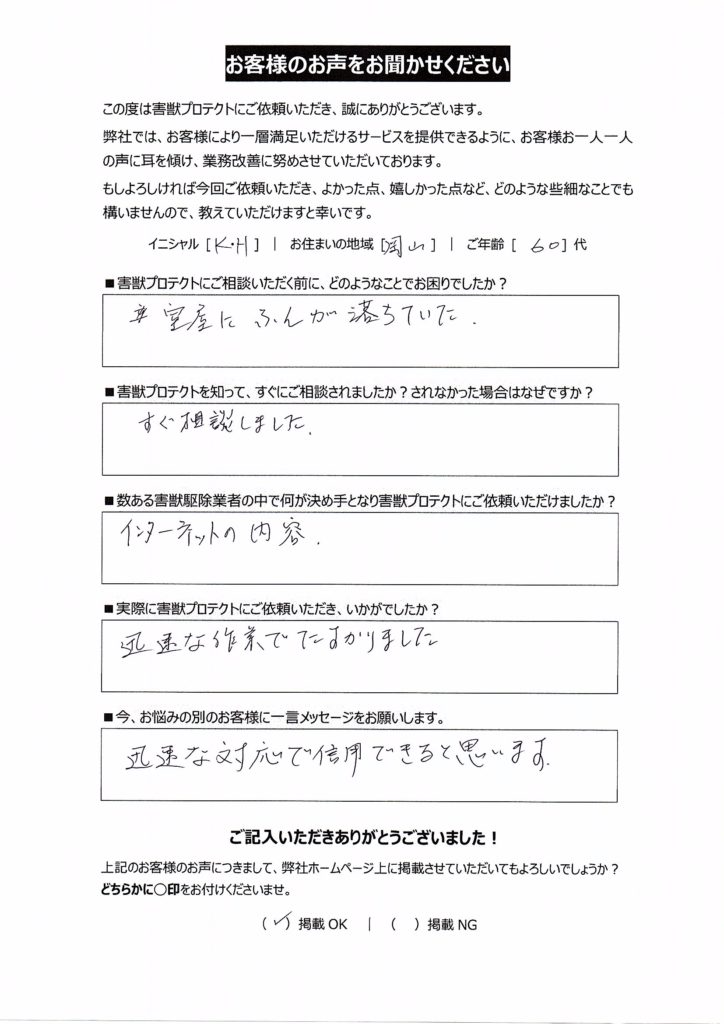 お客様のお声をお聞かせください
この度は害獣プロテクトにご依頼いただき、誠にありがとうございます。
弊社では、お客様により一層満足いただけるサービスを提供できるように、お客様お一人一人
の声に耳を傾け、業務改善に努めさせていただいております。
もしよろしければ今回ご依頼いただき、よかった点、嬉しかった点など、どのような些細なことでも
構いませんので、教えていただけますと幸いです。
イニシャル [K・H] | お住まいの地域 [岡山] | ご年齢 [ 60] 代
■害獣プロテクトにご相談いただく前に、どのようなことでお困りでしたか？
室屋に ふんが 落ちていた.
■害獣プロテクトを知って、すぐにご相談されましたか？されなかった場合はなぜですか？
すぐ相談しました.
■数ある害獣駆除業者の中で何が決め手となり害獣プロテクトにご依頼いただけましたか？
インターネットの 内容.
■実際に害獣プロテクトにご依頼いただき、いかがでしたか？
迅速な作業でたすかりました
■今、お悩みの別のお客様に一言メッセージをお願いします。
迅速な対応で信用できると思います.
ご記入いただきありがとうございました！
上記のお客様のお声につきまして、弊社ホームページ上に掲載させていただいてもよろしいでしょうか？
どちらかに〇印をお付けくださいませ。
(✓) 掲載 OK | ( ) 掲載 NG